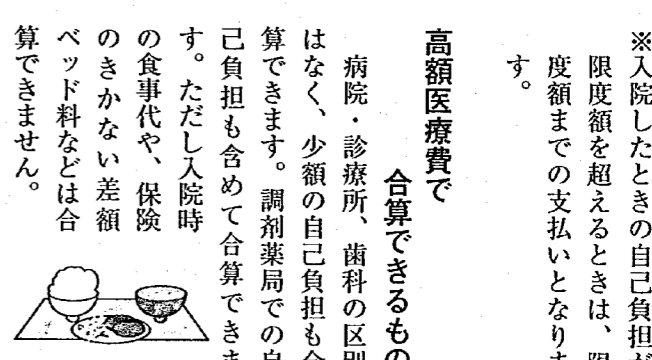 ※入院したときの自己負担が
限度額を超えるときは、限
度額までの支払いとなりま
す。
高額医療費で
合算できるもの
病院・診療所、歯科の区別
はなく、少額の自己負担も合
算できます。調剤薬局での自
己負担も含めて合算できま
す。ただし入院時
の食事代や、保険
のきかない差額
ベッド料などは合
算できません。